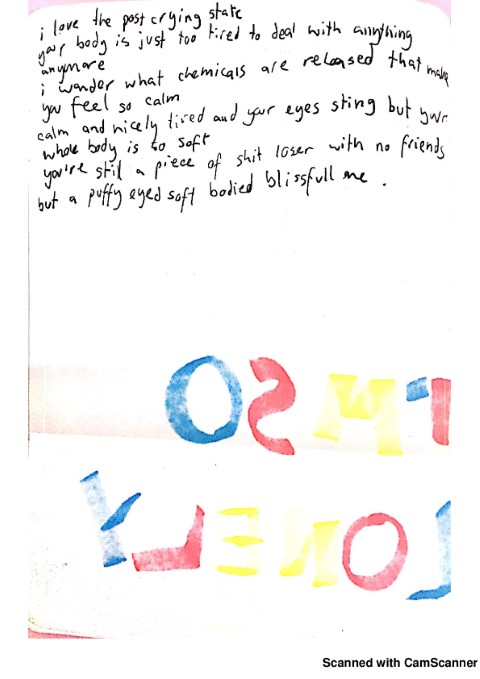 i love the post crying state
your body is just too tired to deal with anything
anymore
i wonder what chemicals are released that make
you feel so calm
calm and nicely tired and your eyes sting but your
whole body is so soft
you're still a piece of shit loser with no friends
but a puffy eyed soft bodied blissfull me .
I'M SO
LONELY
Scanned with CamScanner